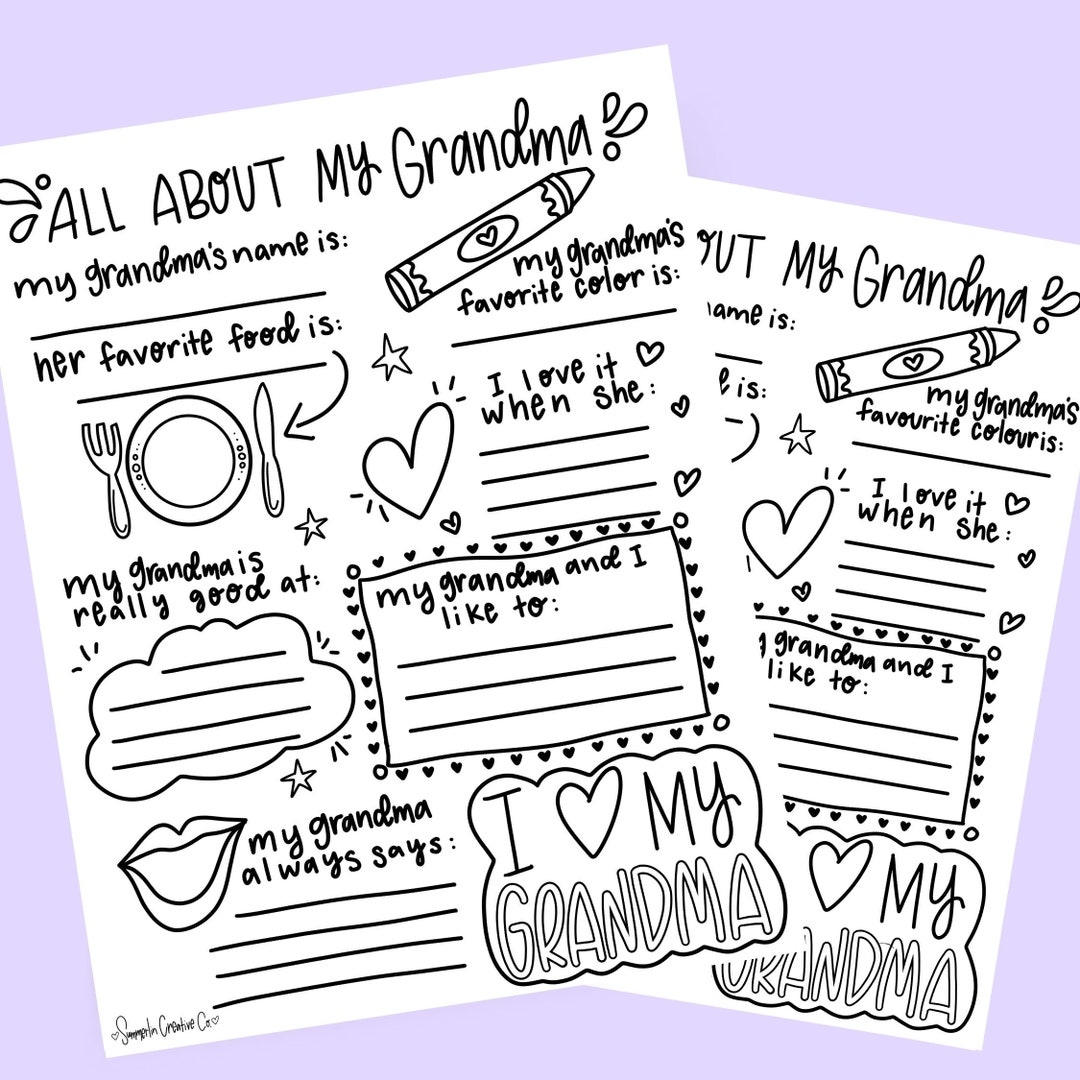 ALL ABOUT MY Grandma
my grandma's name is:
her favorite food is:
my grandma's
favorite color is:
I love it
when she:
my grandma is
really good at:
my grandma and I
like to:
my grandma
always says:
I MY
GRANDMA
Summerlin Creative Co.
OUT MY Grandma
ame is:
is:
my grandma's
favourite colour is:
I love it
when she:
grandma and I
like to:
MY
GRANDMA